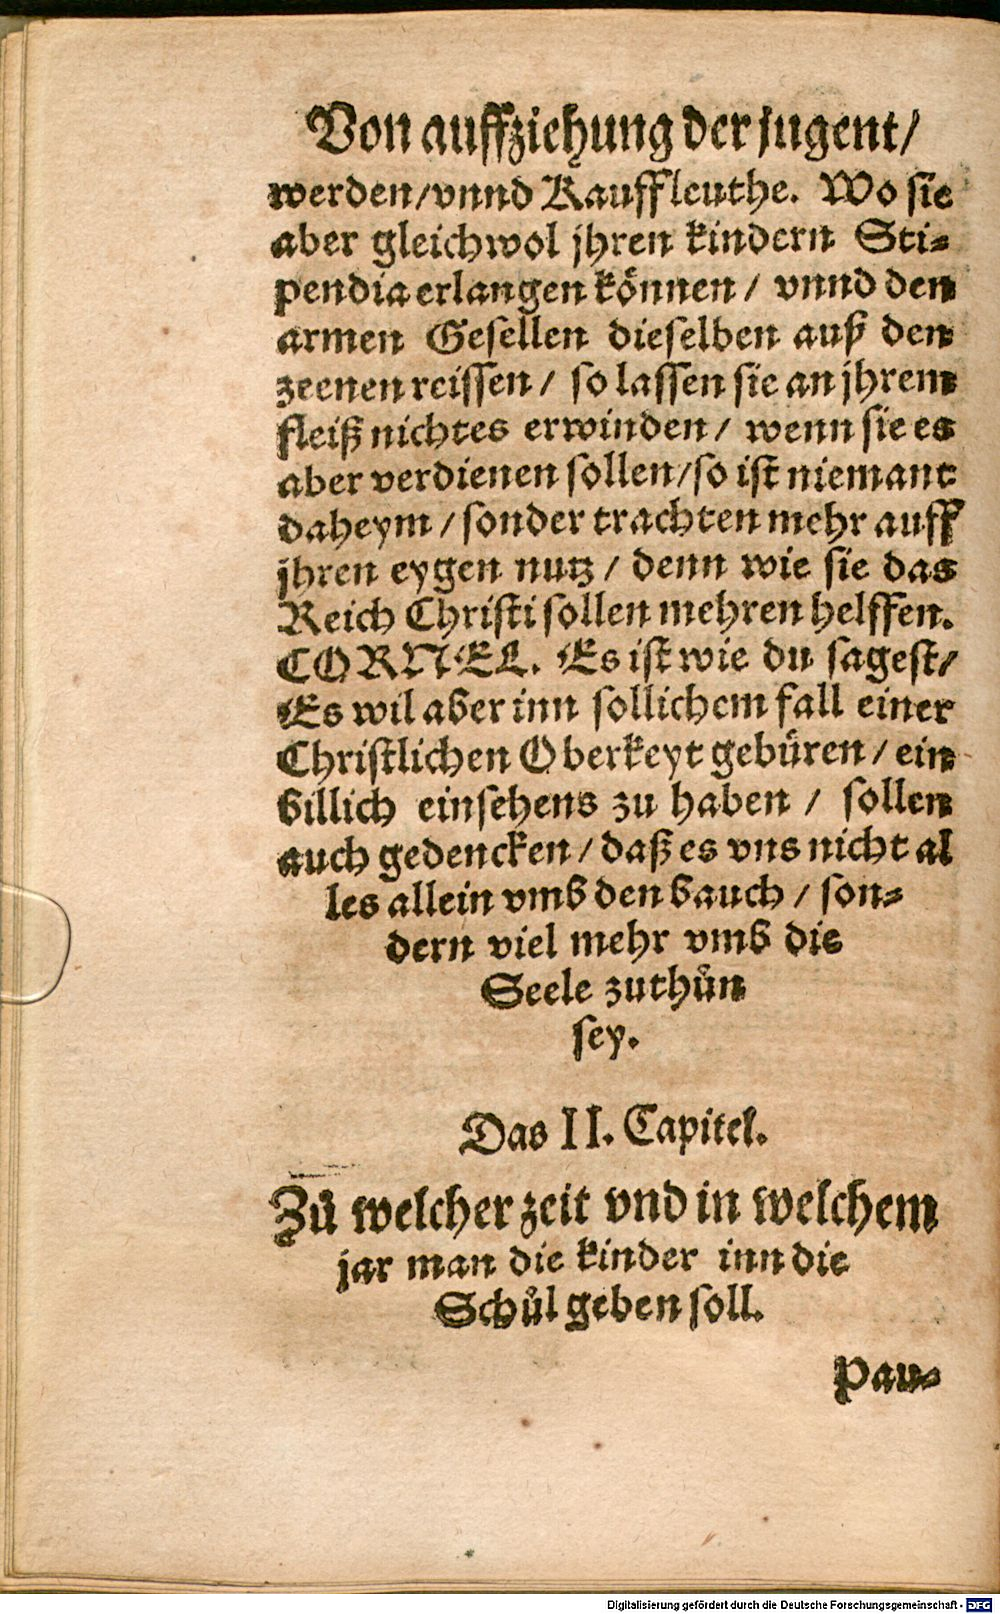 Von auffziehung der jugent/
werden/vnnd Kauffleuthe. Wo sie
aber gleichwol jhren kindern Sti-
pendia erlangen können / vnnd den
armen Gesellen dieselben auß den
zeenen reissen / so lassen sie an jhrem
fleiß nichtes erwinden / wenn sie es
aber verdienen sollen/so ist niemant
daheym / sonder trachten mehr auff
jhren eygen nutz / denn wie sie das
Reich Christi sollen mehren helffen.
CORNEL. Es ist wie du sagest/
Es wil aber inn sollichem fall einer
Christlichen Oberkeyt gebüren / ein
billich einsehens zu haben / sollen
auch gedencken / daß es vns nicht al
les allein vmb den bauch / son-
dern viel mehr vmb die
Seele zuthůn
sey.
Das II. Capitel.
Zů welcher zeit vnd in welchem
jar man die kinder inn die
Schůl geben soll.
Pau-
Digitalisierung gefördert durch die Deutsche Forschungsgemeinschaft - DFG